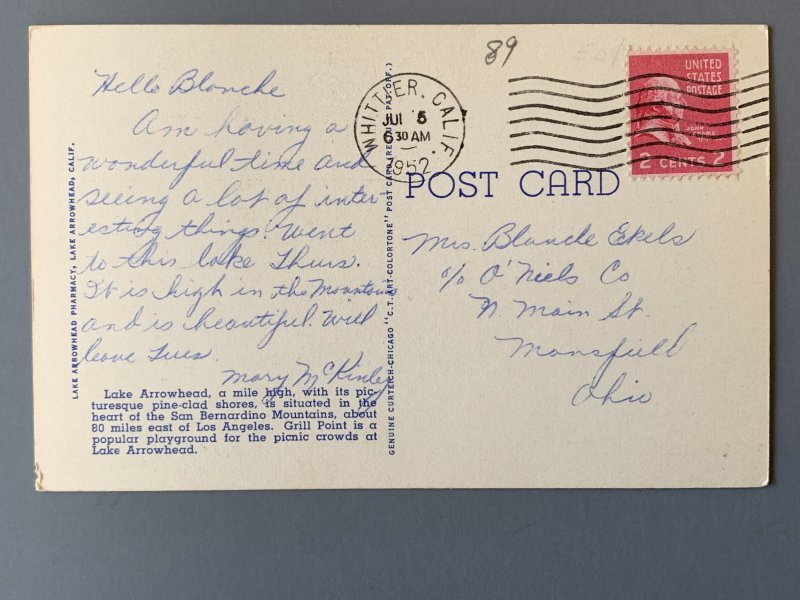 89
50¢
Hello Blanche
Am having a
wonderful time and
seeing a lot of inter-
esting things. Went
to this lake Thurs.
It is high in the Mountains
and is beautiful. Will
leave Tues.
Mary McKinley
Lake Arrowhead, a mile high, with its pic-
turesque pine-clad shores, is situated in the
heart of the San Bernardino Mountains, about
80 miles east of Los Angeles. Grill Point is a
popular playground for the picnic crowds at
Lake Arrowhead.
LAKE ARROWHEAD PHARMACY, LAKE ARROWHEAD, CALIF.
GENUINE CURTEICH-CHICAGO "C.T. ART-COLORTONE" POST CARD (REG. U.S. PAT. OFF.)
WHITTIER, CALIF.
JUL 5
6 30 AM
1952
UNITED
STATES
POSTAGE
JOHN
ADAMS
2 CENTS 2
POST CARD
Mrs. Blanche Eckels
c/o O'Niels Co
N. Main St.
Mansfield
Ohio